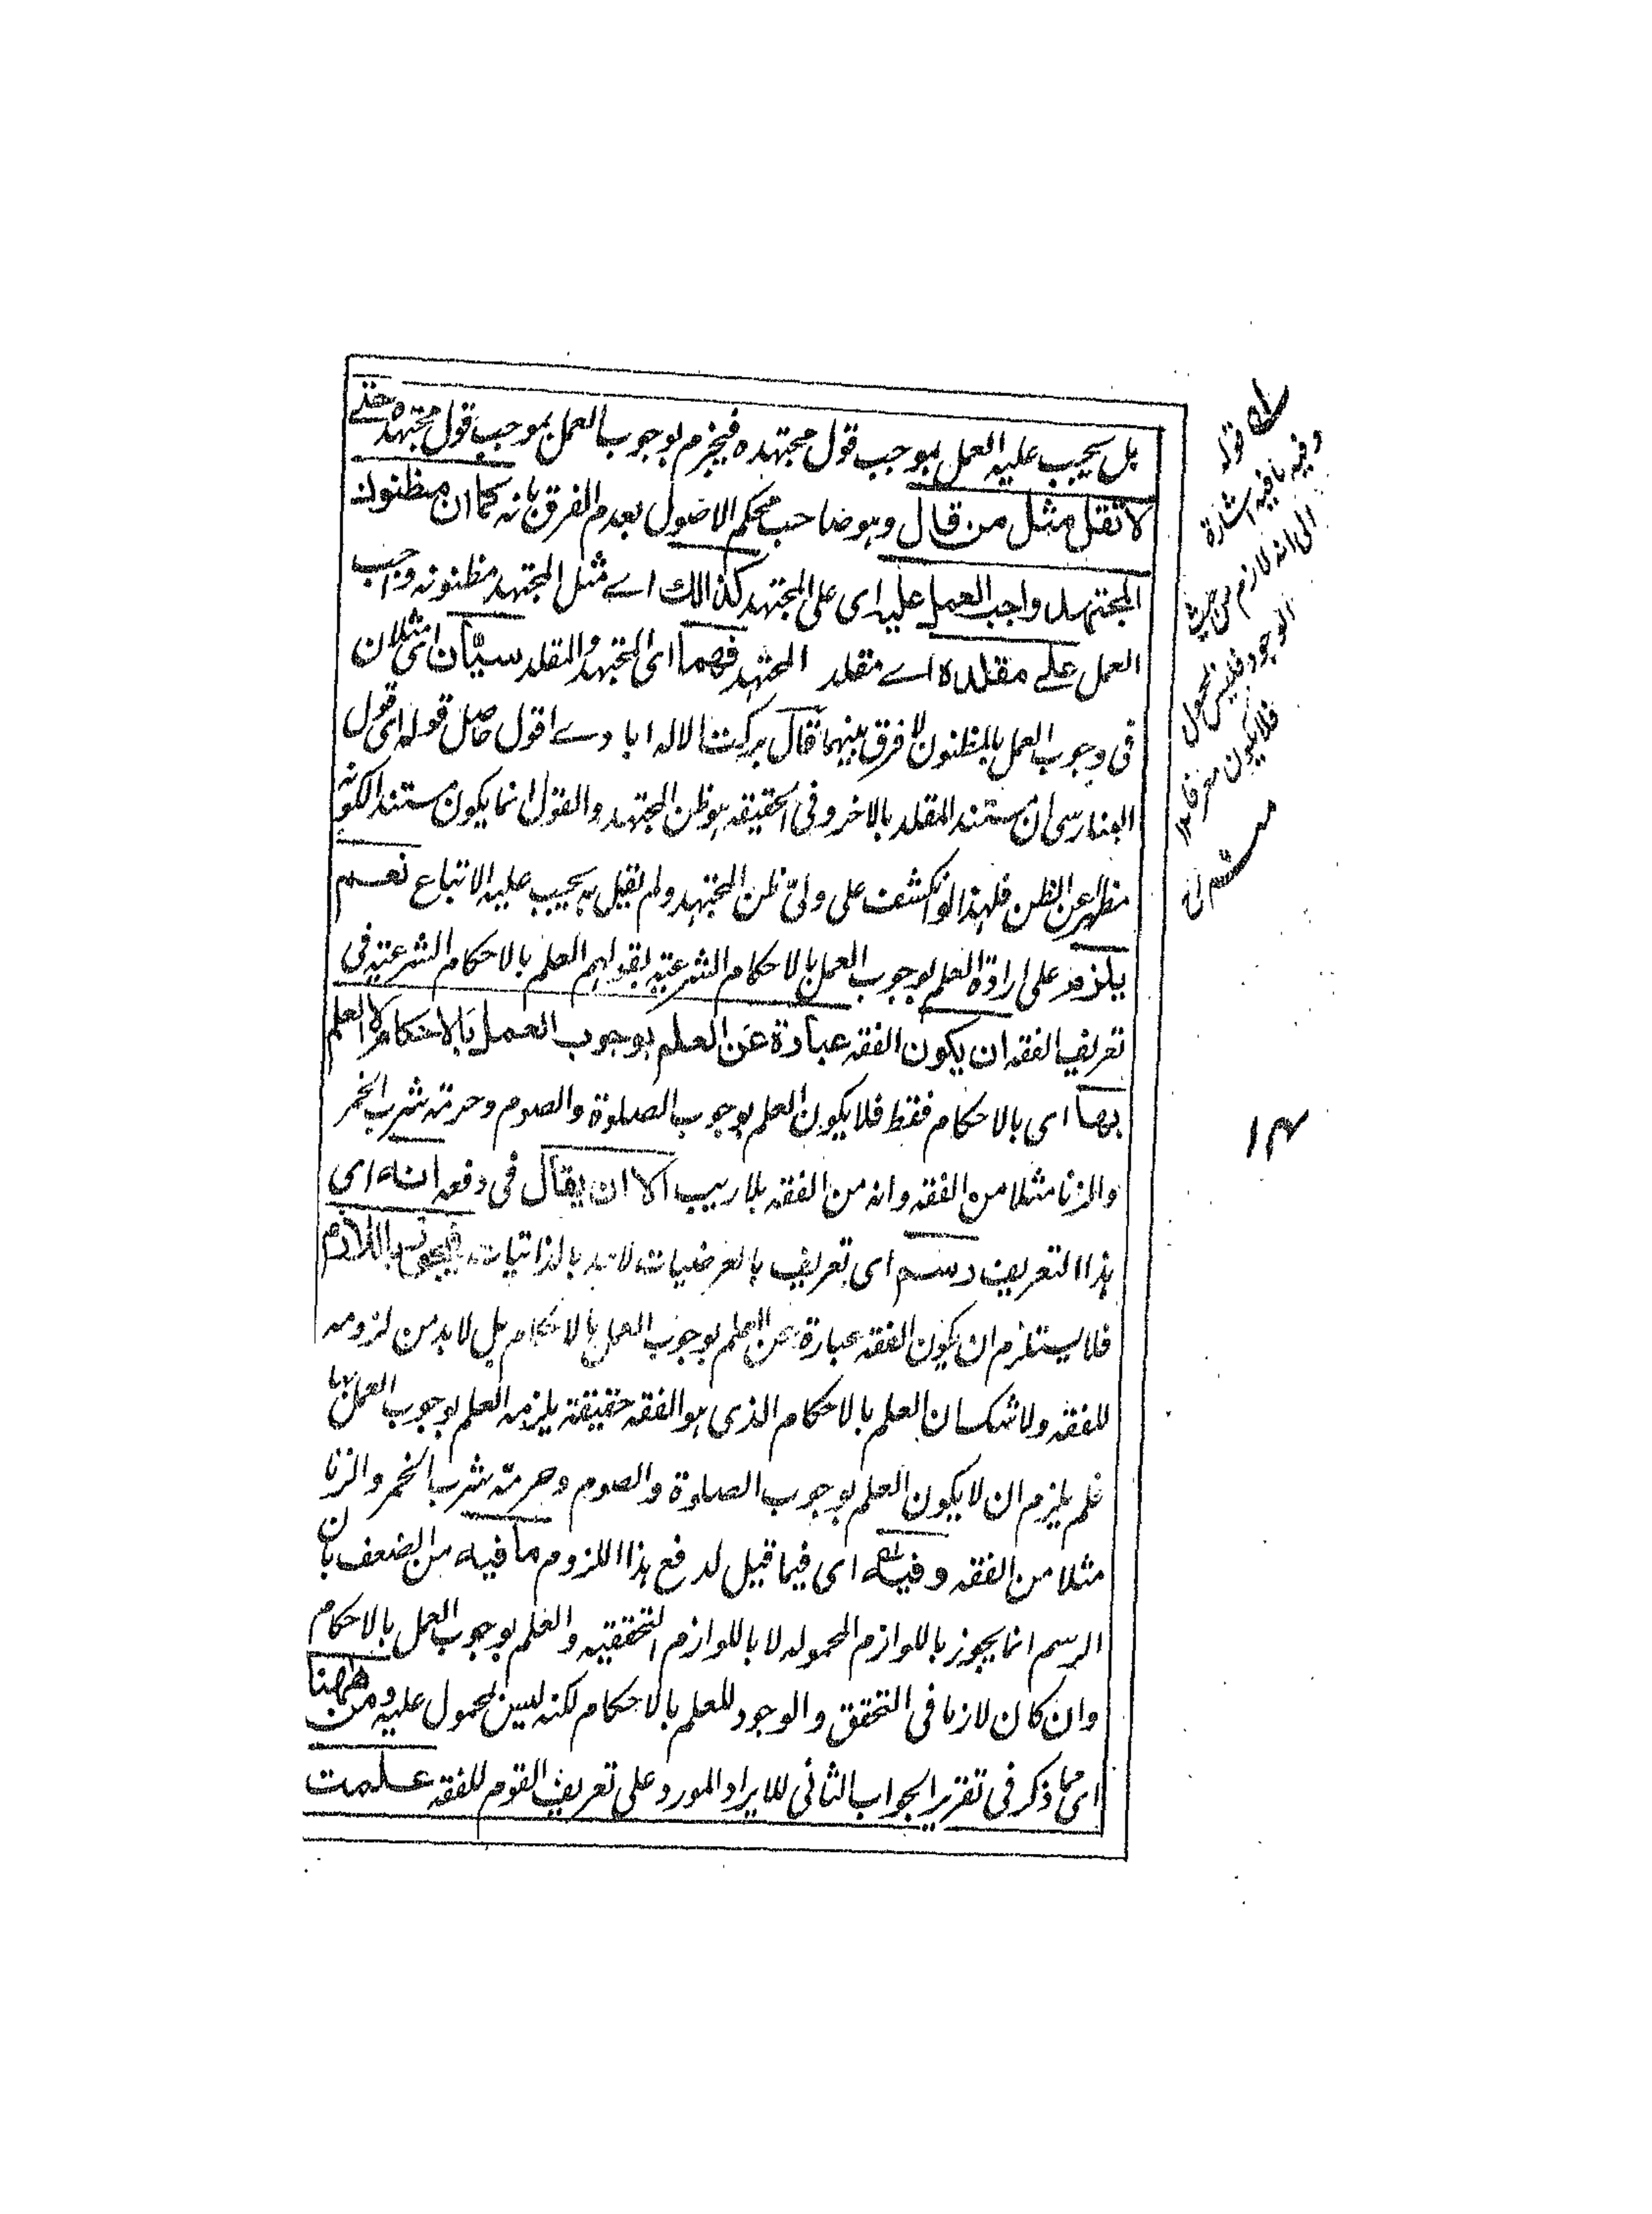 بل يجب عليه العمل بموجب قول مجتهده فيجزم بوجوب العمل بموجب قول مجتهده حتے
لا تقل مثل من قال وهو صاحب محكم الاصول بعدم الفرق بانه كما ان مظنون
المجتهد واجب العمل عليه اى على المجتهد كذالك اے مثل المجتهد مظنونه واجب
العمل علے مقلده اے مقلد المجتهد فهما اى المجتهد والمقلد سيّان اى مثلان
فى وجوب العمل بالمظنون لا فرق بينهما قال بركت الاله ابادے اقول حاصل قوله اى قول
البنارسى ان مستند المقلد بالاخر وفى الحقيقه هو ظن المجتهد والقول انما يكون مستندا لكونه
مظهرا عن الظن فلهذا لو انكشف على ولىّ ظن المجتهد ولم يقبل به يجب عليه الاتباع نعم
يلزم على ارادة العلم بوجوب العمل بالاحكام الشرعية بقولهم العلم بالاحكام الشرعية فى
تعريف الفقه ان يكون الفقه عبارة عن العلم بوجوب العمل بالاحكام لا العلم
بها اى بالاحكام فقط فلا يكون العلم بوجوب الصلوة والصوم وحرمة شرب الخمر
والزنا مثلا من الفقه وانه من الفقه بلا ريب الا ان يقال فى دفعه انه اى
هذا التعريف رسم اى تعريف بالعرضيات لا حد بالذاتيات فيجوز باللازم
فلا يستلزم ان يكون الفقه عبارة عن العلم بوجوب العمل بالاحكام بل لا بد من لزومه
للفقه ولا شك ان العلم بالاحكام الذى هو الفقه حقيقة يلزمه العلم بوجوب العمل بها
فلم يلزم ان لا يكون العلم بوجوب الصلوة والصوم وحرمة شرب الخمر والزنا
مثلا من الفقه وفيه اى فيما قيل لدفع هذا اللزوم ما فيه من الضعف بان
الرسم انما يجوز باللوازم المحموله لا باللوازم التحققيه والعلم بوجوب العمل بالاحكام
وان كان لازما فى التحقق والوجود للعلم بالاحكام لكنه ليس بمحمول عليه ومن ههنا
اى مما ذكر فى تقرير الجواب الثانى للايراد المورد على تعريف القوم للفقه علمت
قوله
وفيه ما فيه اشارة
الى انه لازم من حيث
الوجود فليس بمحمول
فلا يكون معرفا ١٢
١٣